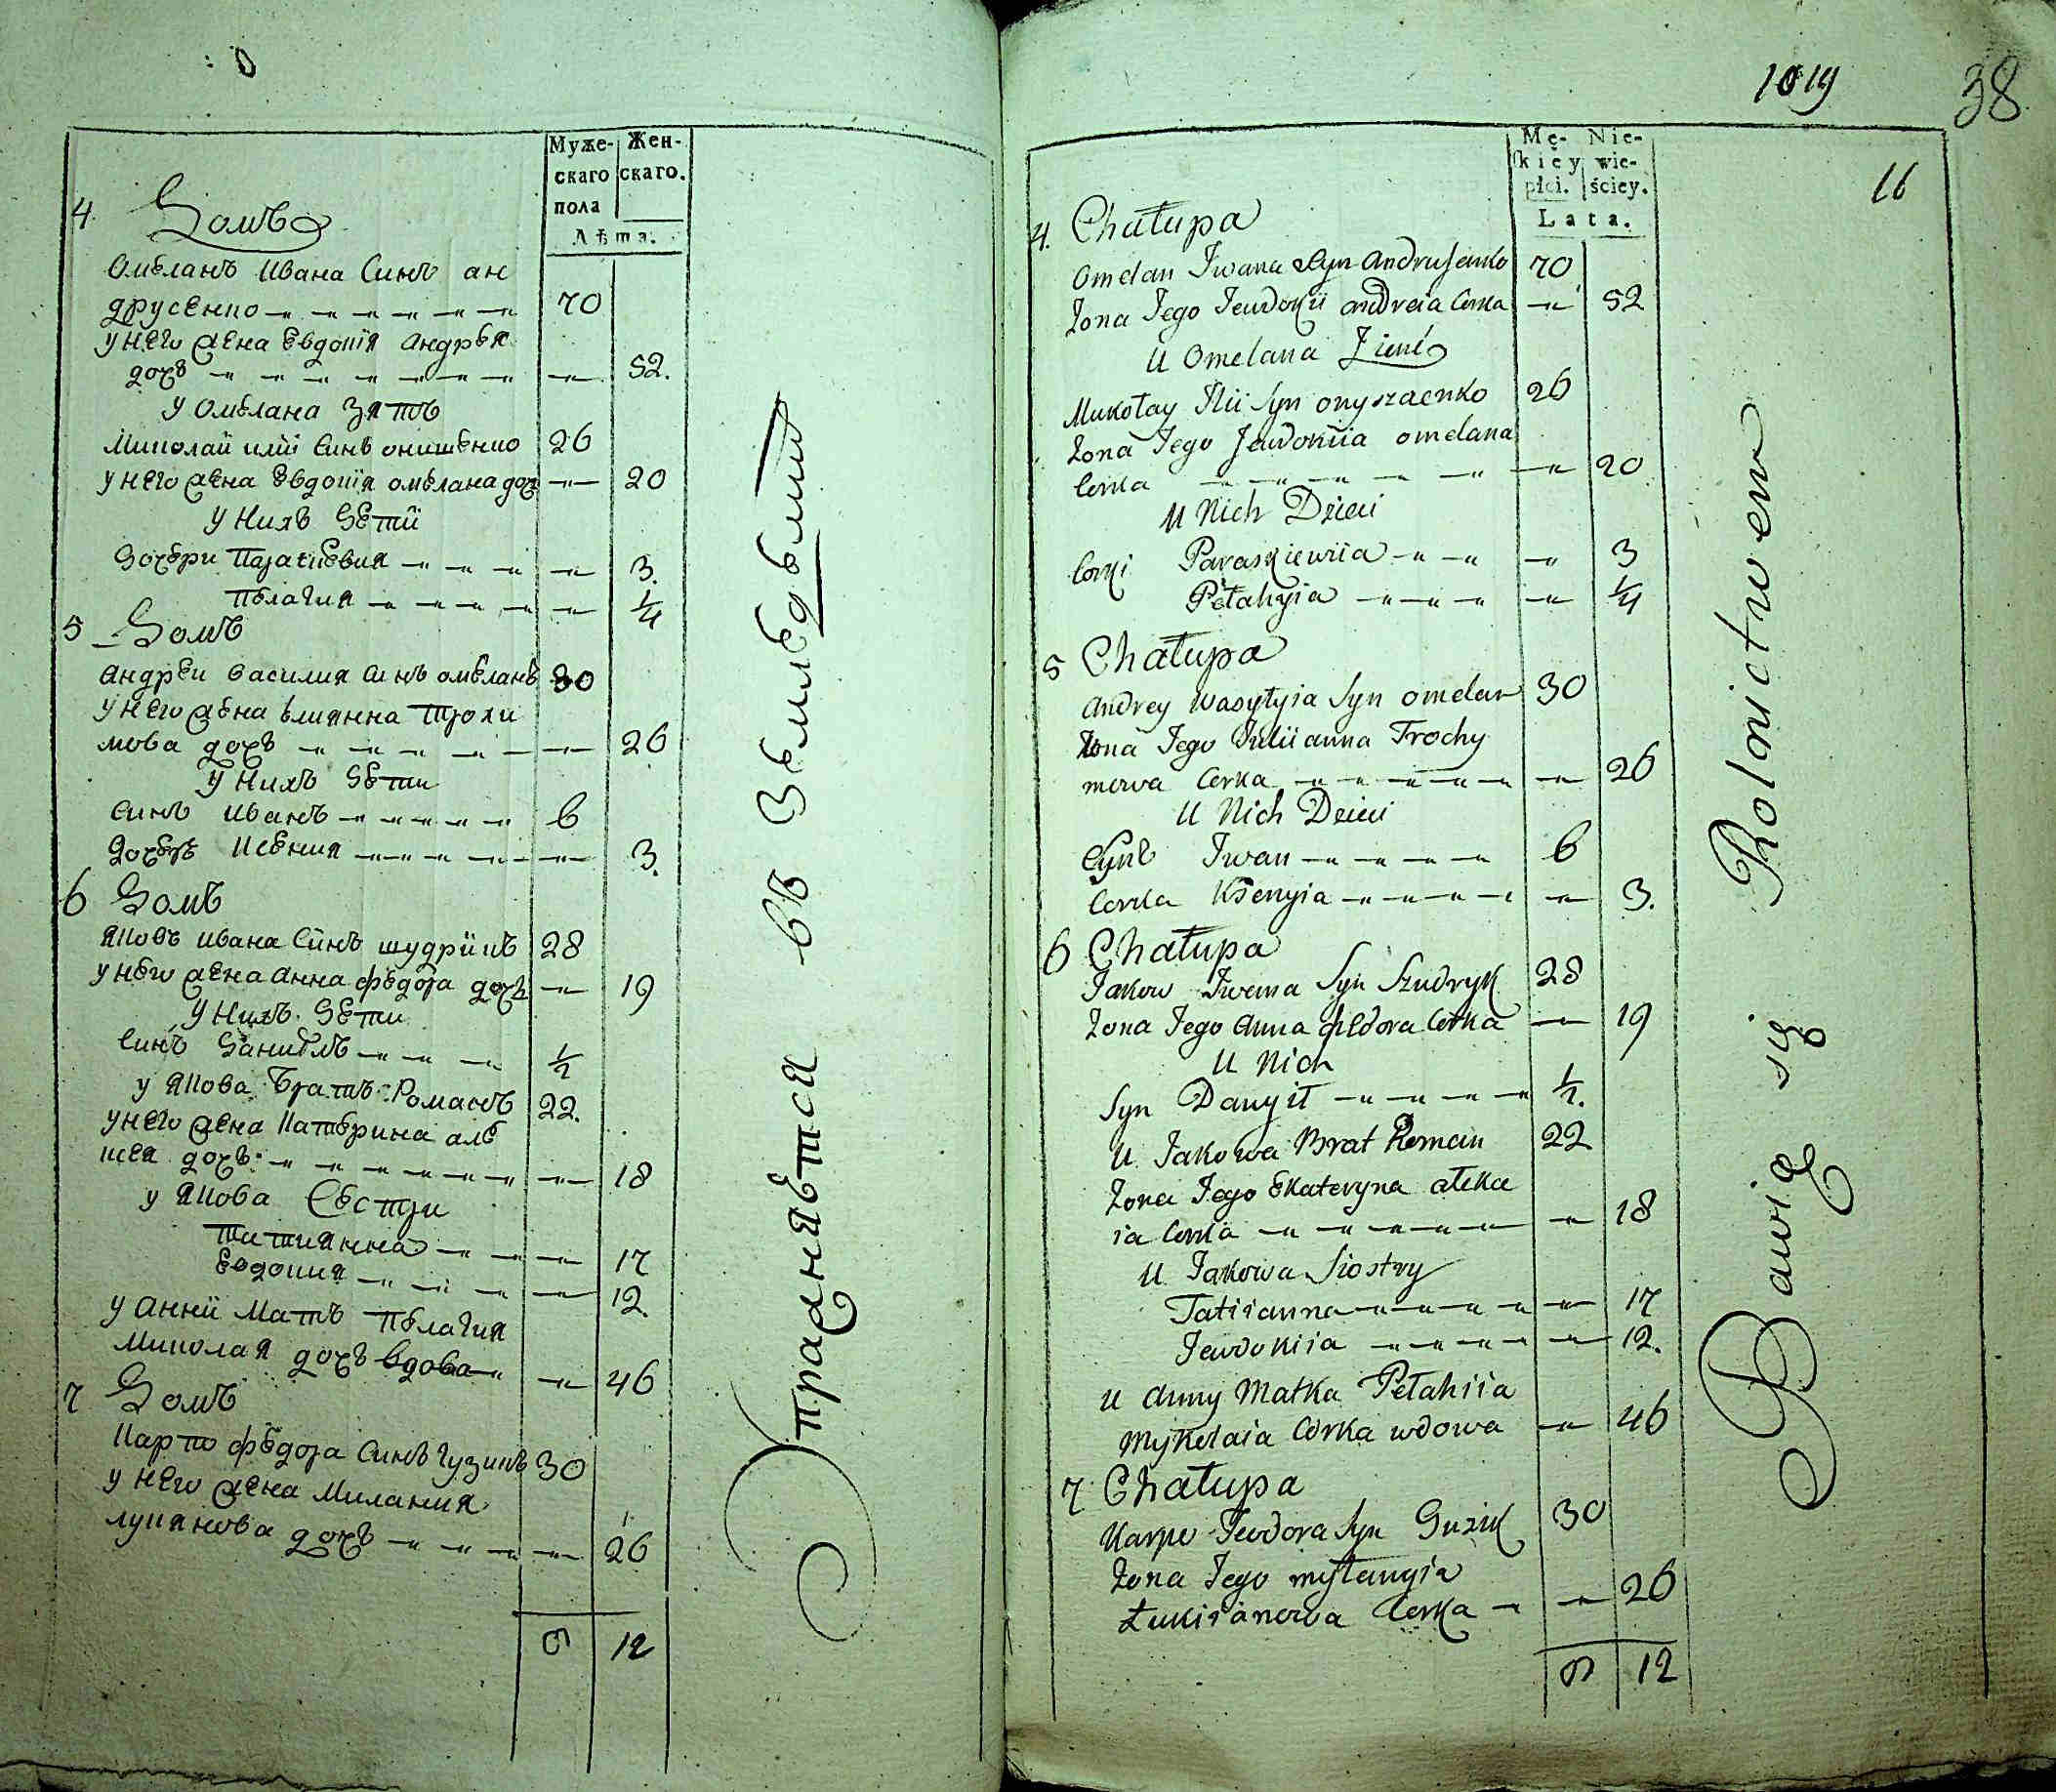 : 0
Муже-
скаго
пола
Жен-
скаго.
Лѣта.
4. Домъ
Омеланъ Ивана Синъ ан
друсенко
70
у него жена Евдокія Андрея
дочъ
52.
у Омелана Зять
Миколай иліи Синъ онишенко 26
у него жена Евдокія омелана доч 20
у нихъ Дети
Дочери Параскевия 3.
Пелагия 1/4
5 Домъ
Андреи Василия Синъ омеланъ 30
у него жена Елианна Трохи
мова дочъ 26
у нихъ Дети
Синъ Иванъ 6
Дочеръ Ксения 3.
6 Домъ
Яковъ Ивана Синъ шудрикъ 28
у него жена Анна федора дочъ 19
у нихъ Дети
Синъ Данилъ 1/2
у Якова Братъ Романъ 22.
у него жена Катерина але
ксея дочъ 18
у Якова Сестри
Татианна 17
Евдокия 12.
у Анни Мать Пелагия
Миколая дочъ вдова 46
7 Домъ
Карпо федора Синъ гузикъ 30
у него жена Милания
лукянова дочъ 26
9 12
Упражняется въ Земледелии
1019
38
16
Mę-
skiey
płci.
Nie-
wie-
ściey.
Lata.
4. Chałupa
Omelan Iwana Syn Andrusenko 70
Żona Iego Iewdokii andreia Corka 52
U Omelana Zieńć
Mukołay Ilii Syn onyszaenko 26
Żona Iego Jewdokiia omelana
Corka 20
U Nich Dzieci
Corki Paraskiewiia 3
Pełahyia 1/4
5 Chałupa
Andrey Wasyłyia Syn omelan 30
Żona Iego Iuliianna Trochy
mowa Corka 26
U Nich Dzieci
Synb Iwan 6
Corka Ksenyia 3.
6 Chałupa
Jakow Iwana Syn Szudryk 28
Żona Iego Anna fedora Corka 19
U Nich
Syn Danyił 1/2.
U Jakowa Brat Roman 22
Żona Iego Ekateryna ałeka
ia Corka 18
U Jakowa Siostry
Tatiianna 17
Jewdokiia 12.
U Anny Matka Pełahiia
Mykolaia Corka wdowa 46
7 Chałupa
Karpo Feodora Syn Guzik 30
Żona Iego myłanyia
Łukiianowa Corka 26
9 12
Bawią się Rolnictwem